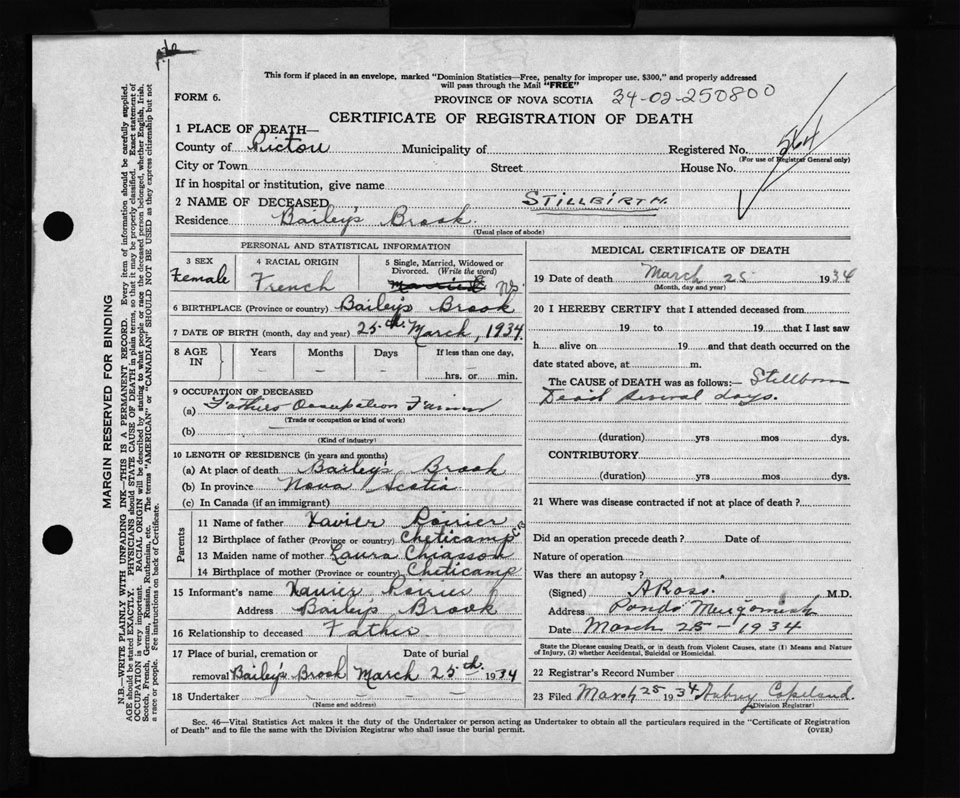 This form if placed in an envelope, marked "Dominion Statistics—Free, penalty for improper use, $300," and properly addressed
will pass through the Mail "FREE"
FORM 6.
PROVINCE OF NOVA SCOTIA 34-02-250800
CERTIFICATE OF REGISTRATION OF DEATH
1 PLACE OF DEATH—
County of Pictou Municipality of Registered No. 564
(For use of Registrar General only)
City or Town Street House No.
If in hospital or institution, give name
2 NAME OF DECEASED STILLBIRTH.
Residence Bailey's Brook.
(Usual place of abode)
PERSONAL AND STATISTICAL INFORMATION
3 SEX
Female
4 RACIAL ORIGIN
French
5 Single, Married, Widowed or
Divorced. (Write the word)
6 BIRTHPLACE (Province or country) Bailey's Brook
7 DATE OF BIRTH (month, day and year) 25th March, 1934.
8 AGE IN
Years Months Days If less than one day,
— — — hrs. or — min.
9 OCCUPATION OF DECEASED
(a) Fathers Occupation Farmer
(Trade or occupation or kind of work)
(b) —
(Kind of industry)
10 LENGTH OF RESIDENCE (in years and months)
(a) At place of death Bailey's Brook
(b) In province Nova Scotia
(c) In Canada (if an immigrant)
Parents
11 Name of father Xavier Poirier
12 Birthplace of father (Province or country) Cheticamp CB
13 Maiden name of mother Laura Chiasson
14 Birthplace of mother (Province or country) Cheticamp
15 Informant's name Xavier Poirier
Address Bailey's Brook
16 Relationship to deceased Father.
17 Place of burial, cremation or Date of burial
removal Bailey's Brook March 25th 1934
18 Undertaker — — — — — —
(Name and address)
MEDICAL CERTIFICATE OF DEATH
19 Date of death March 25 1934
(Month, day and year)
20 I HEREBY CERTIFY that I attended deceased from
19 to 19 that I last saw
h alive on 19 and that death occurred on the
date stated above, at m.
The CAUSE OF DEATH was as follows:— Stillborn
Dead several days.
(duration) yrs mos dys.
CONTRIBUTORY
(duration) yrs mos dys.
21 Where was disease contracted if not at place of death?
Did an operation precede death? Date of
Nature of operation
Was there an autopsy?
(Signed) A Ross. M.D.
Address Ponds Merigomish
Date March 25 - 1934
State the Disease causing Death, or in death from Violent Causes, state (1) Means and Nature
of Injury, (2) whether Accidental, Suicidal or Homicidal.
22 Registrar's Record Number
23 Filed March 25 1934 Aubrey Copeland.
(Division Registrar)
Sec. 46—Vital Statistics Act makes it the duty of the Undertaker or person acting as Undertaker to obtain all the particulars required in the "Certificate of Registration
of Death" and to file the same with the Division Registrar who shall issue the burial permit. (OVER)
MARGIN RESERVED FOR BINDING
N.B.—WRITE PLAINLY WITH UNFADING INK—THIS IS A PERMANENT RECORD. Every item of information should be carefully supplied.
AGE should be stated EXACTLY. PHYSICIANS should STATE CAUSE OF DEATH in plain terms, so that it may be properly classified. Exact statement of
OCCUPATION is very important. RACIAL ORIGIN will be described by stating to what people or race the deceased person belonged, whether English, Irish,
Scotch, French, German, Russian, Ruthenian, etc. The terms "AMERICAN" or "CANADIAN" SHOULD NOT BE USED as they express citizenship but not
a race or people. See instructions on back of Certificate.